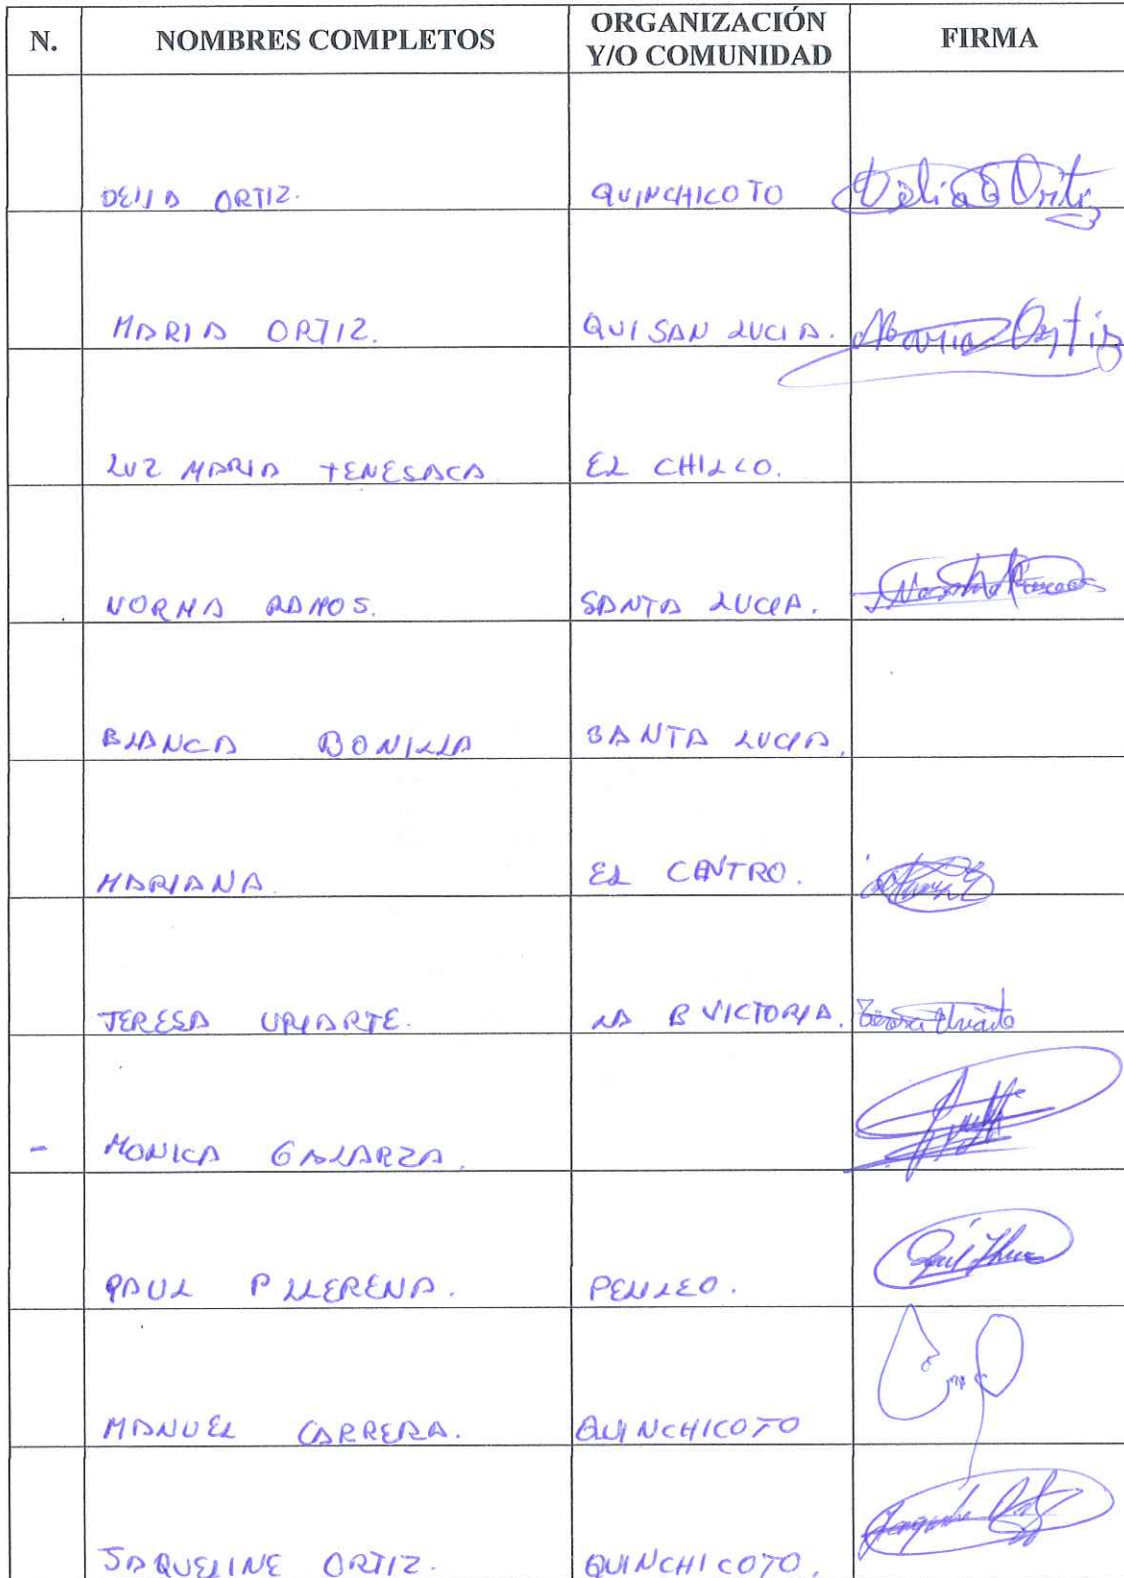 N. NOMBRES COMPLETOS ORGANIZACIÓN Y/O COMUNIDAD FIRMA
DELIA ORTIZ. QUINCHICOTO Delia Ortiz
MARIA ORTIZ. QUI SAN LUCIA. Maria Ortiz
LUZ MARIA TENESACA EL CHILCO.
NORMA RAMOS. SANTA LUCIA. Norma Ramos
BLANCA BONILLA SANTA LUCIA.
MARIANA EL CENTRO.
TERESA URIARTE. LA B VICTORIA. Teresa Uriarte
- MONICA GALARZA.
PAUL P LLERENA. PELILEO.
MANUEL CARRERA. QUINCHICOTO
JAQUELINE ORTIZ. QUINCHICOTO.